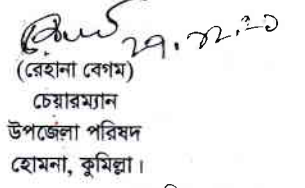 (রেহানা বেগম)
চেয়ারম্যান
উপজেলা পরিষদ
হোমনা, কুমিল্লা।